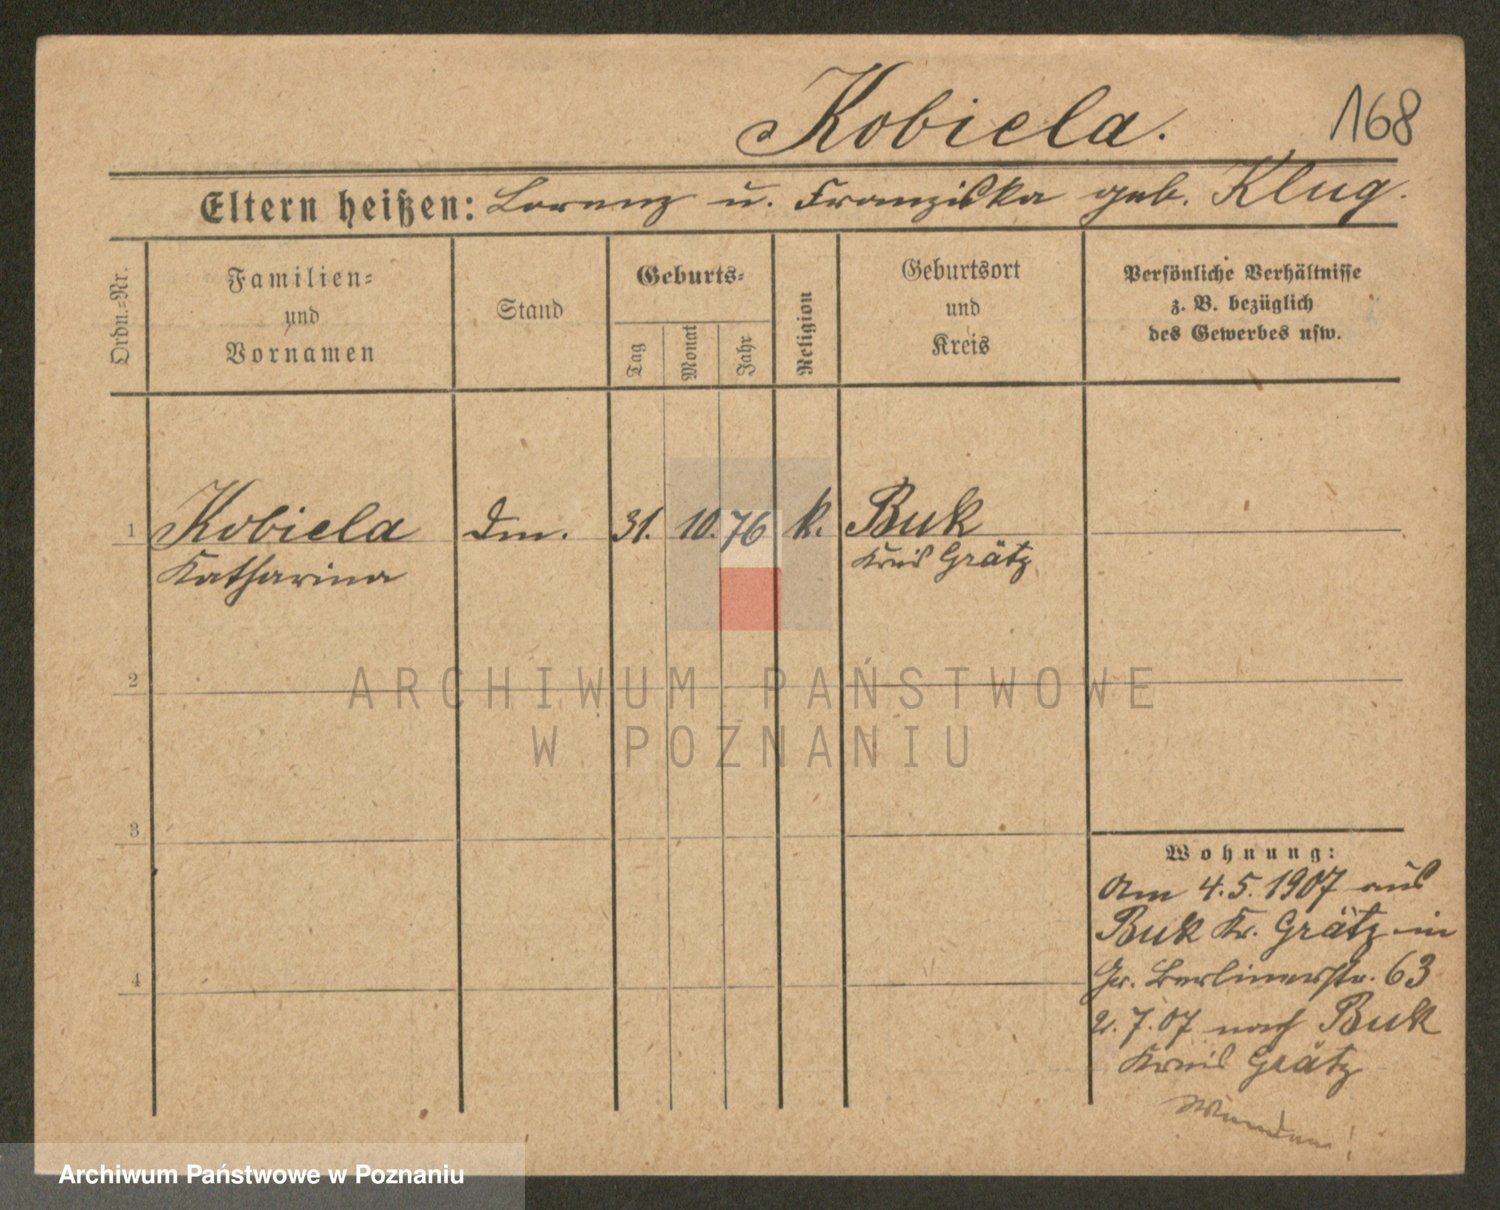 Kobiela.
168
Eltern heißen: Lorenz u. Franziska geb. Klug.
Ordn.=Nr.
Familien=
und
Vornamen
Stand
Geburts=
Tag
Monat
Jahr
Religion
Geburtsort
und
Kreis
Persönliche Verhältnisse
z. B. bezüglich
des Gewerbes usw.
1 Kobiela 31. 10. 76 k. Buk
Katharina Kreis Grätz
2
ARCHIWUM PAŃSTWOWE
W POZNANIU
3
Wohnung:
Am 4.5.1907 aus
Buk Kr. Grätz in
Gr. Berlinerstr. 63
2.7.07 nach Buk
Kreis Grätz
4
Archiwum Państwowe w Poznaniu